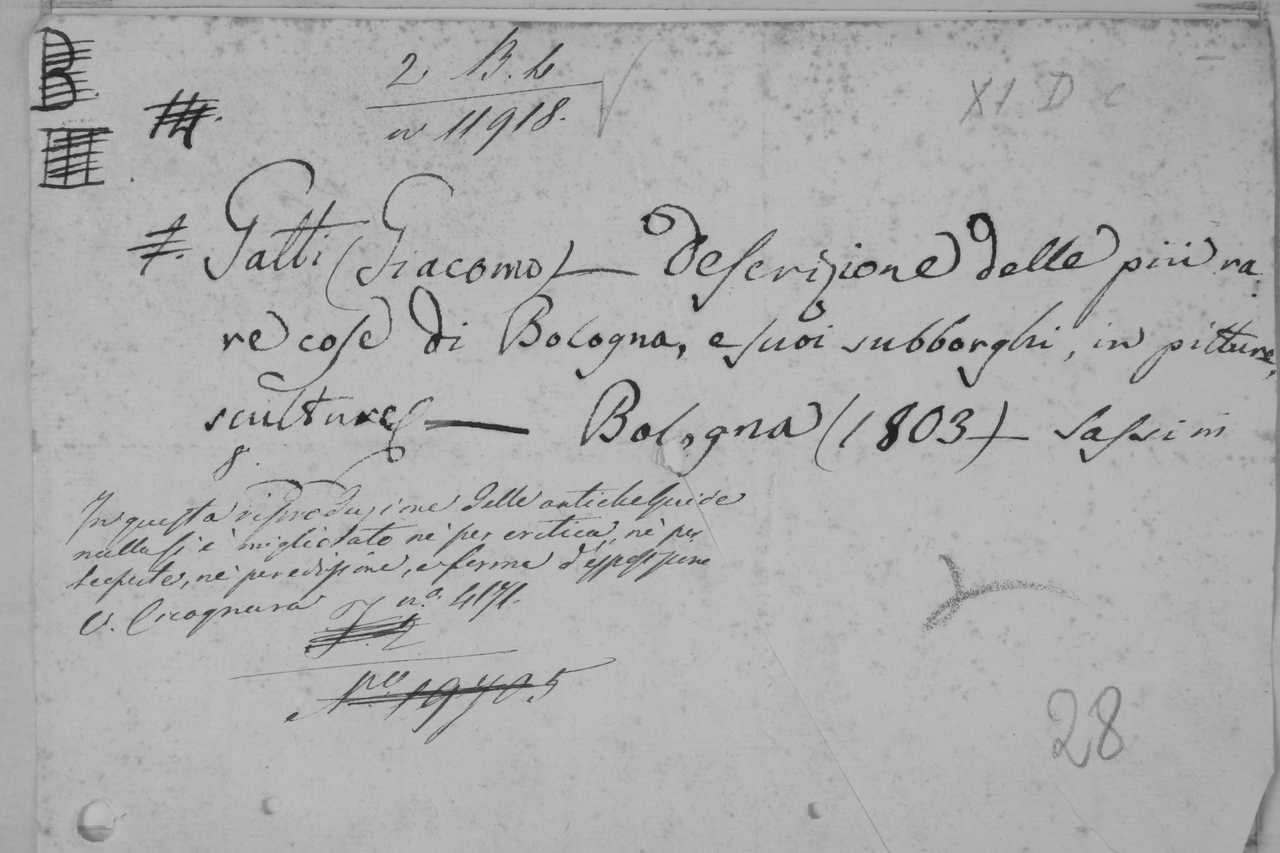 B
2 B. L
n 11918.
XI D c
Gatti (Giacomo) — Descrizione delle più ra
re cose di Bologna, e suoi subborghi, in pitture,
sculture — Bologna (1803) — Sassi in
8.
In questa riproduzione delle antiche Guide
nulla si è migliorato nè per critica, nè per
nè per edizione, e forma d'esposizione
V. Cicognara n.° 4171.
N.° 19705
28